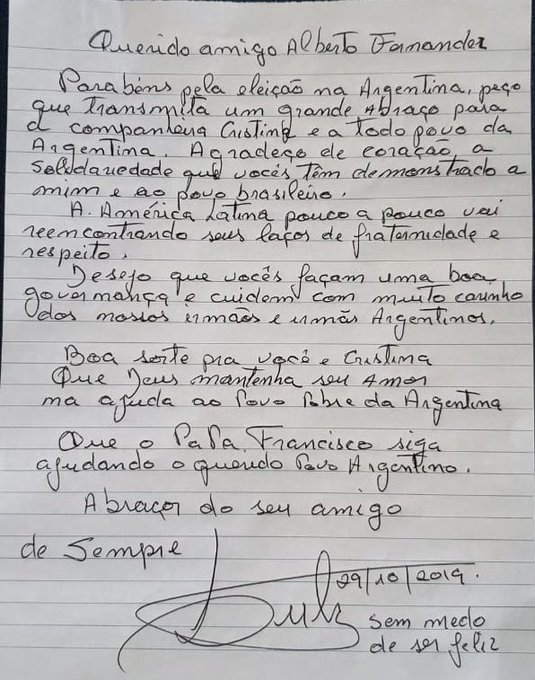 Querido amigo Alberto Fernandez
Parabéns pela eleição na Argentina, peço
que transmita um grande Abraço para
a companheira Cristina e a todo povo da
Argentina. Agradeço de coração a
solidariedade que vocês têm demonstrado a
mim e ao povo brasileiro.
A. América Latina pouco a pouco vai
reencontrando seus laços de fraternidade e
respeito.
Desejo que vocês façam uma boa
governança e cuidem com muito carinho
dos nossos irmãos e irmãs Argentinos.
Boa sorte pra você e Cristina
Que Deus mantenha seu Amor
na ajuda ao Povo Pobre da Argentina
Que o PaPa Francisco siga
ajudando o querido Povo Argentino.
Abraços do seu amigo
de Sempre
29/10/2019.
Lula
sem medo
de ser feliz